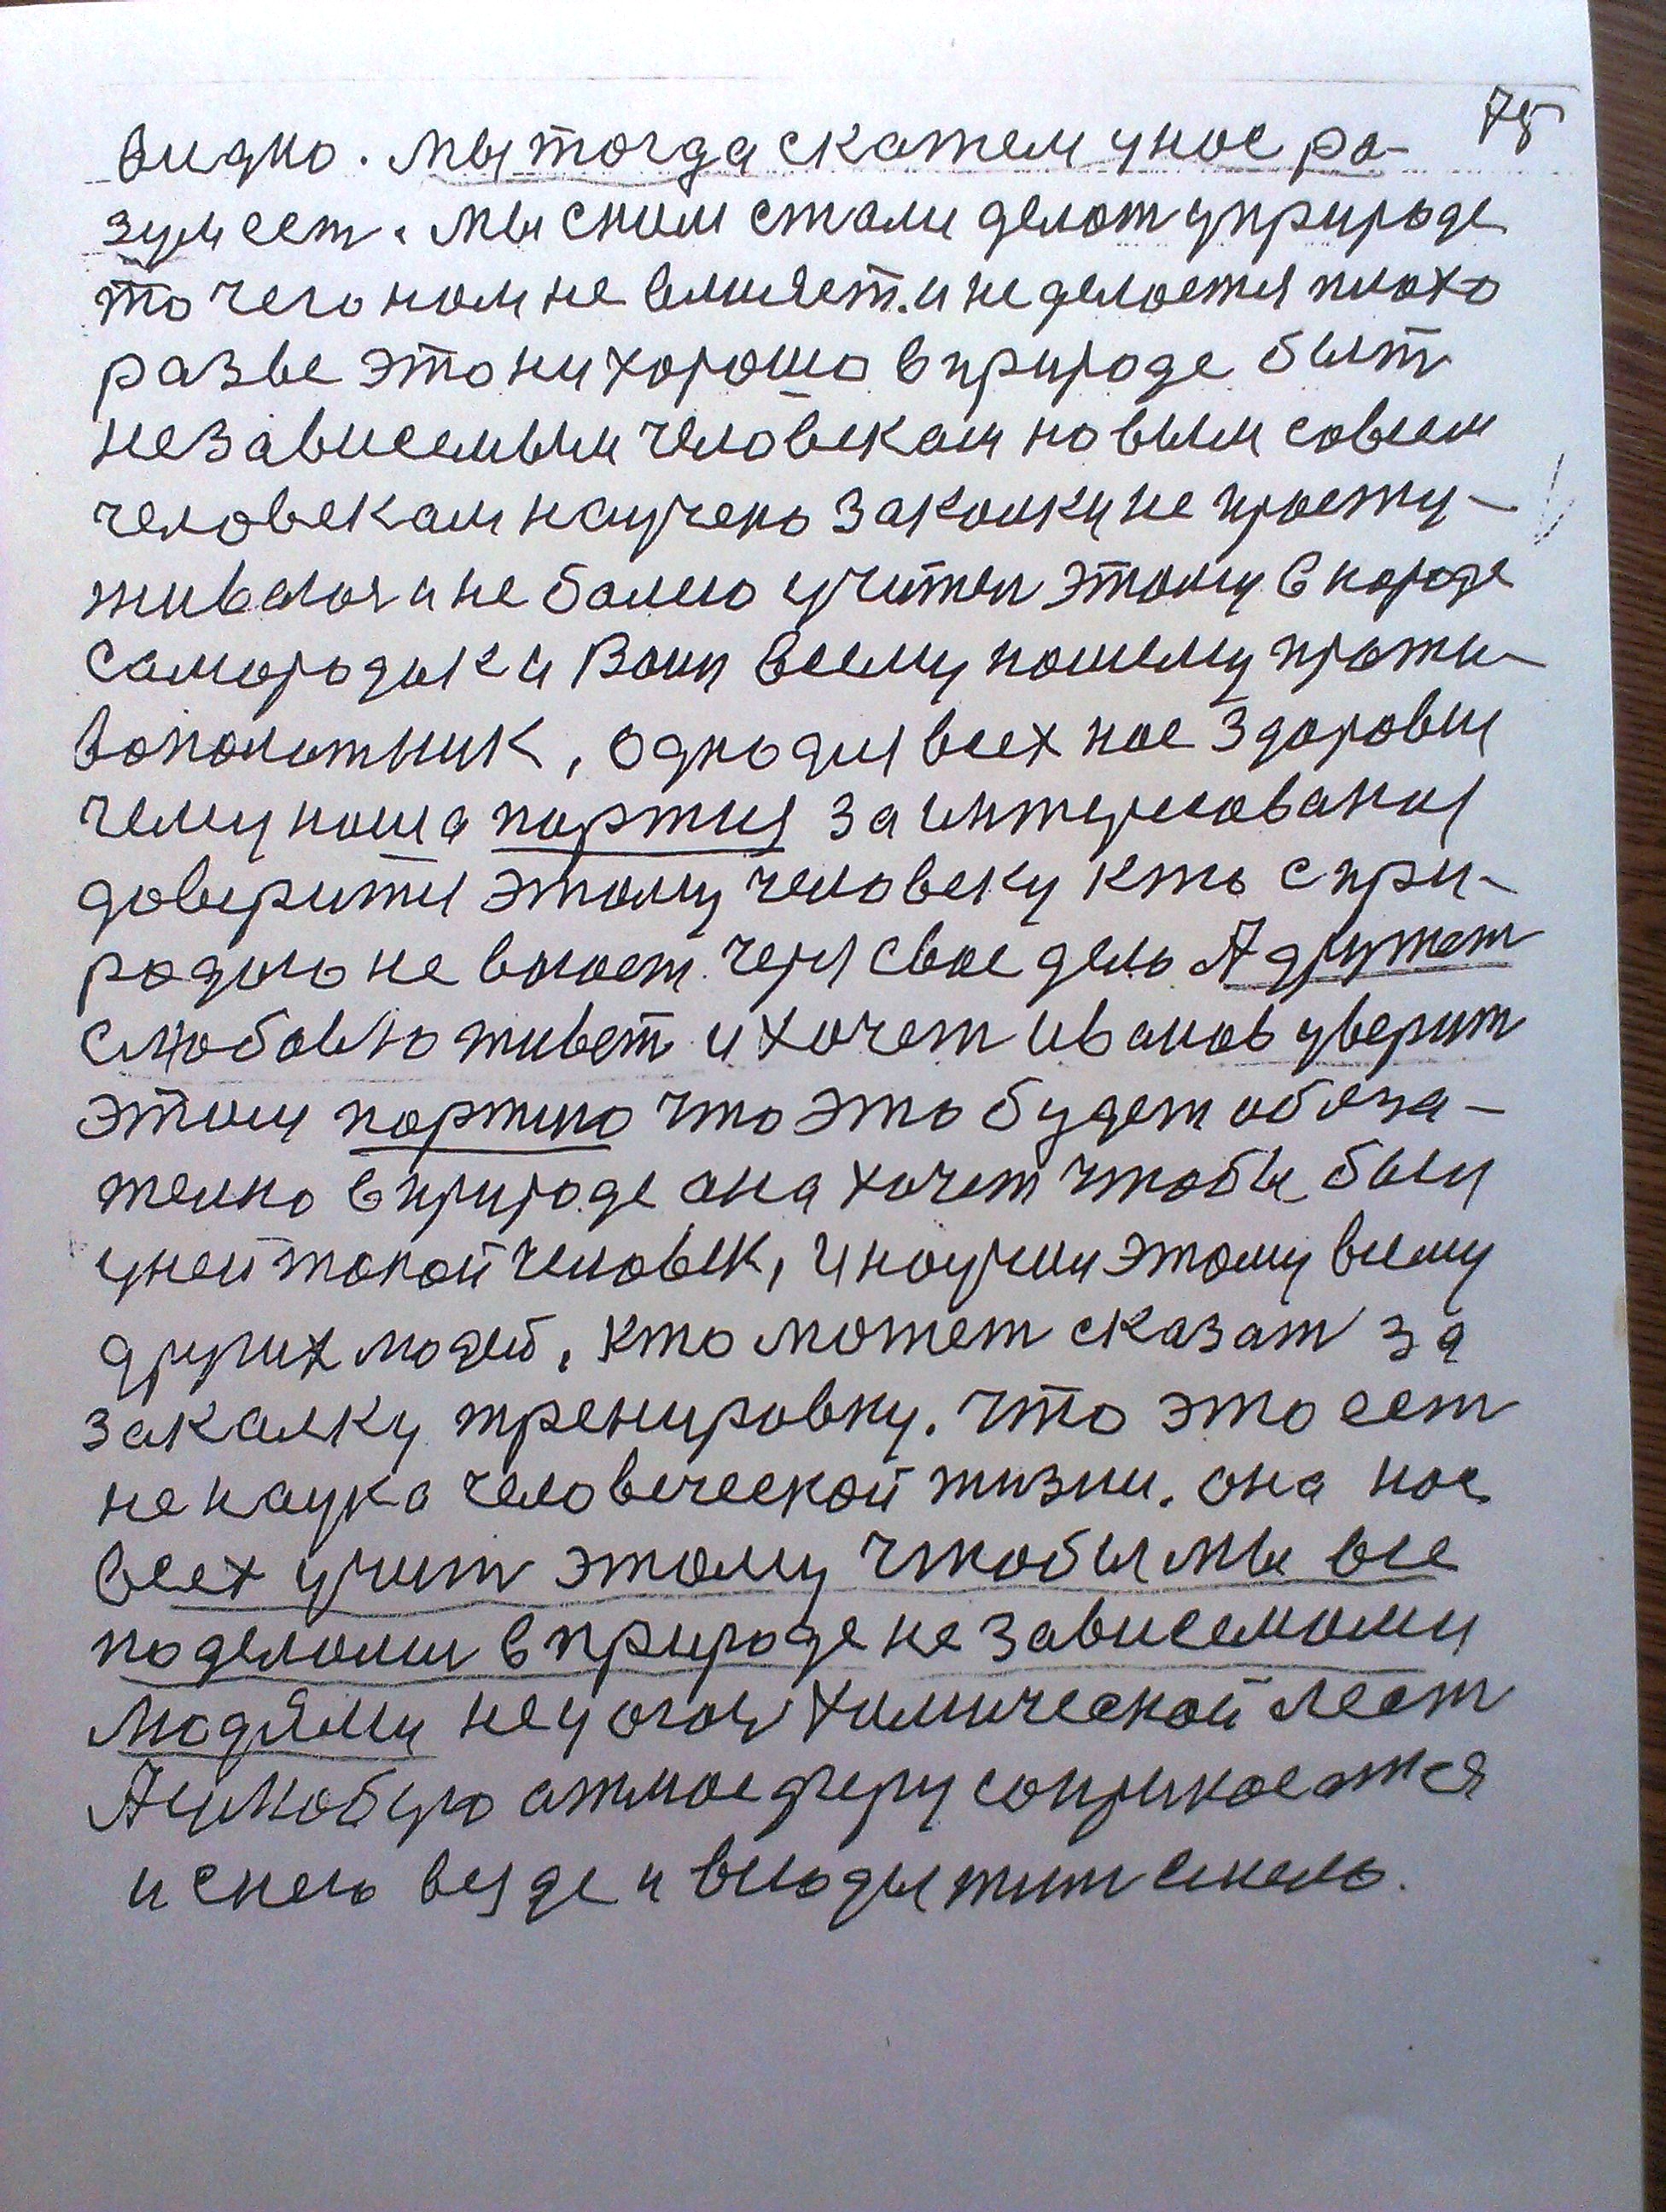 75
видно. Мы тогда скажем у нас ра-
зум ест. Мы с ним стали делат у природе
то чего нам не влияет. и не делается плохо
разве это ни хорошо в природе быт
независемым человекам новым совсем
человекам научено закалку не просту-
живался и не болею учител этому в народе
самородык а Вам всему нашему проти-
вополжник, одно для всех нас здоровия
чему наша партия заинтересованая
доверится этому человеку кто с при-
родою не воюет через свое дело А дружет
с любовью живет и хочет Иванов уверит
этому партию что это будет обяза-
телно в природе она хочет чтобы был
у ней такой человек, и научил этому всему
других людей, кто может сказат за
закалку тренировку. что это ест
не наука человеческой жизни. она нас
всех учит этому чтобы мы все
поделоми в природе не зависемоми
людями не у химической лест
А у любую атмосферу соприкосатся
и с нею везде и всюду жит смело.